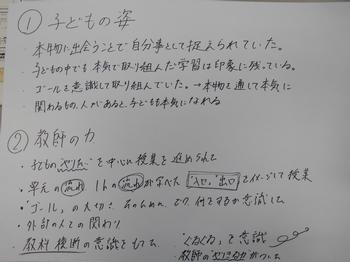 ① 子どもの姿
・本物に出会うことで自分事として捉えられていた。
・子どもの中でも本気で取り組んだ学習は印象に残っている。
・ゴールを意識して取り組んでいた。→本物を通して本気に
関わるもの、人があると、子どもも本気になれる
② 教師の力
・子どもの やりたい を中心に授業を進められた
・単元の 流れ 1hの 流れ が 出口 をイメージして授業
・"ゴール"の大切さ そのために 何をするか意識して
・外部の人との関わり
・教科横断の意識をもてた "ぐるぐる"を意識
教師の